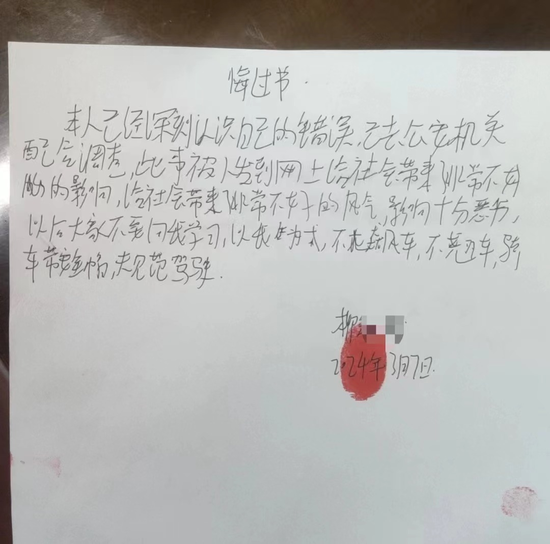 悔过书.
本人已经深刻认识自己的错误,已去公安机关
配合调查,此事被人发到网上给社会带来非常不好
的影响,给社会带来非常不好的风气,影响十分恶劣,
以后大家不要向我学习,以我 方式,不 飙车,不 车,骑
车带 帽, 规范驾驶.
2024年3月7日